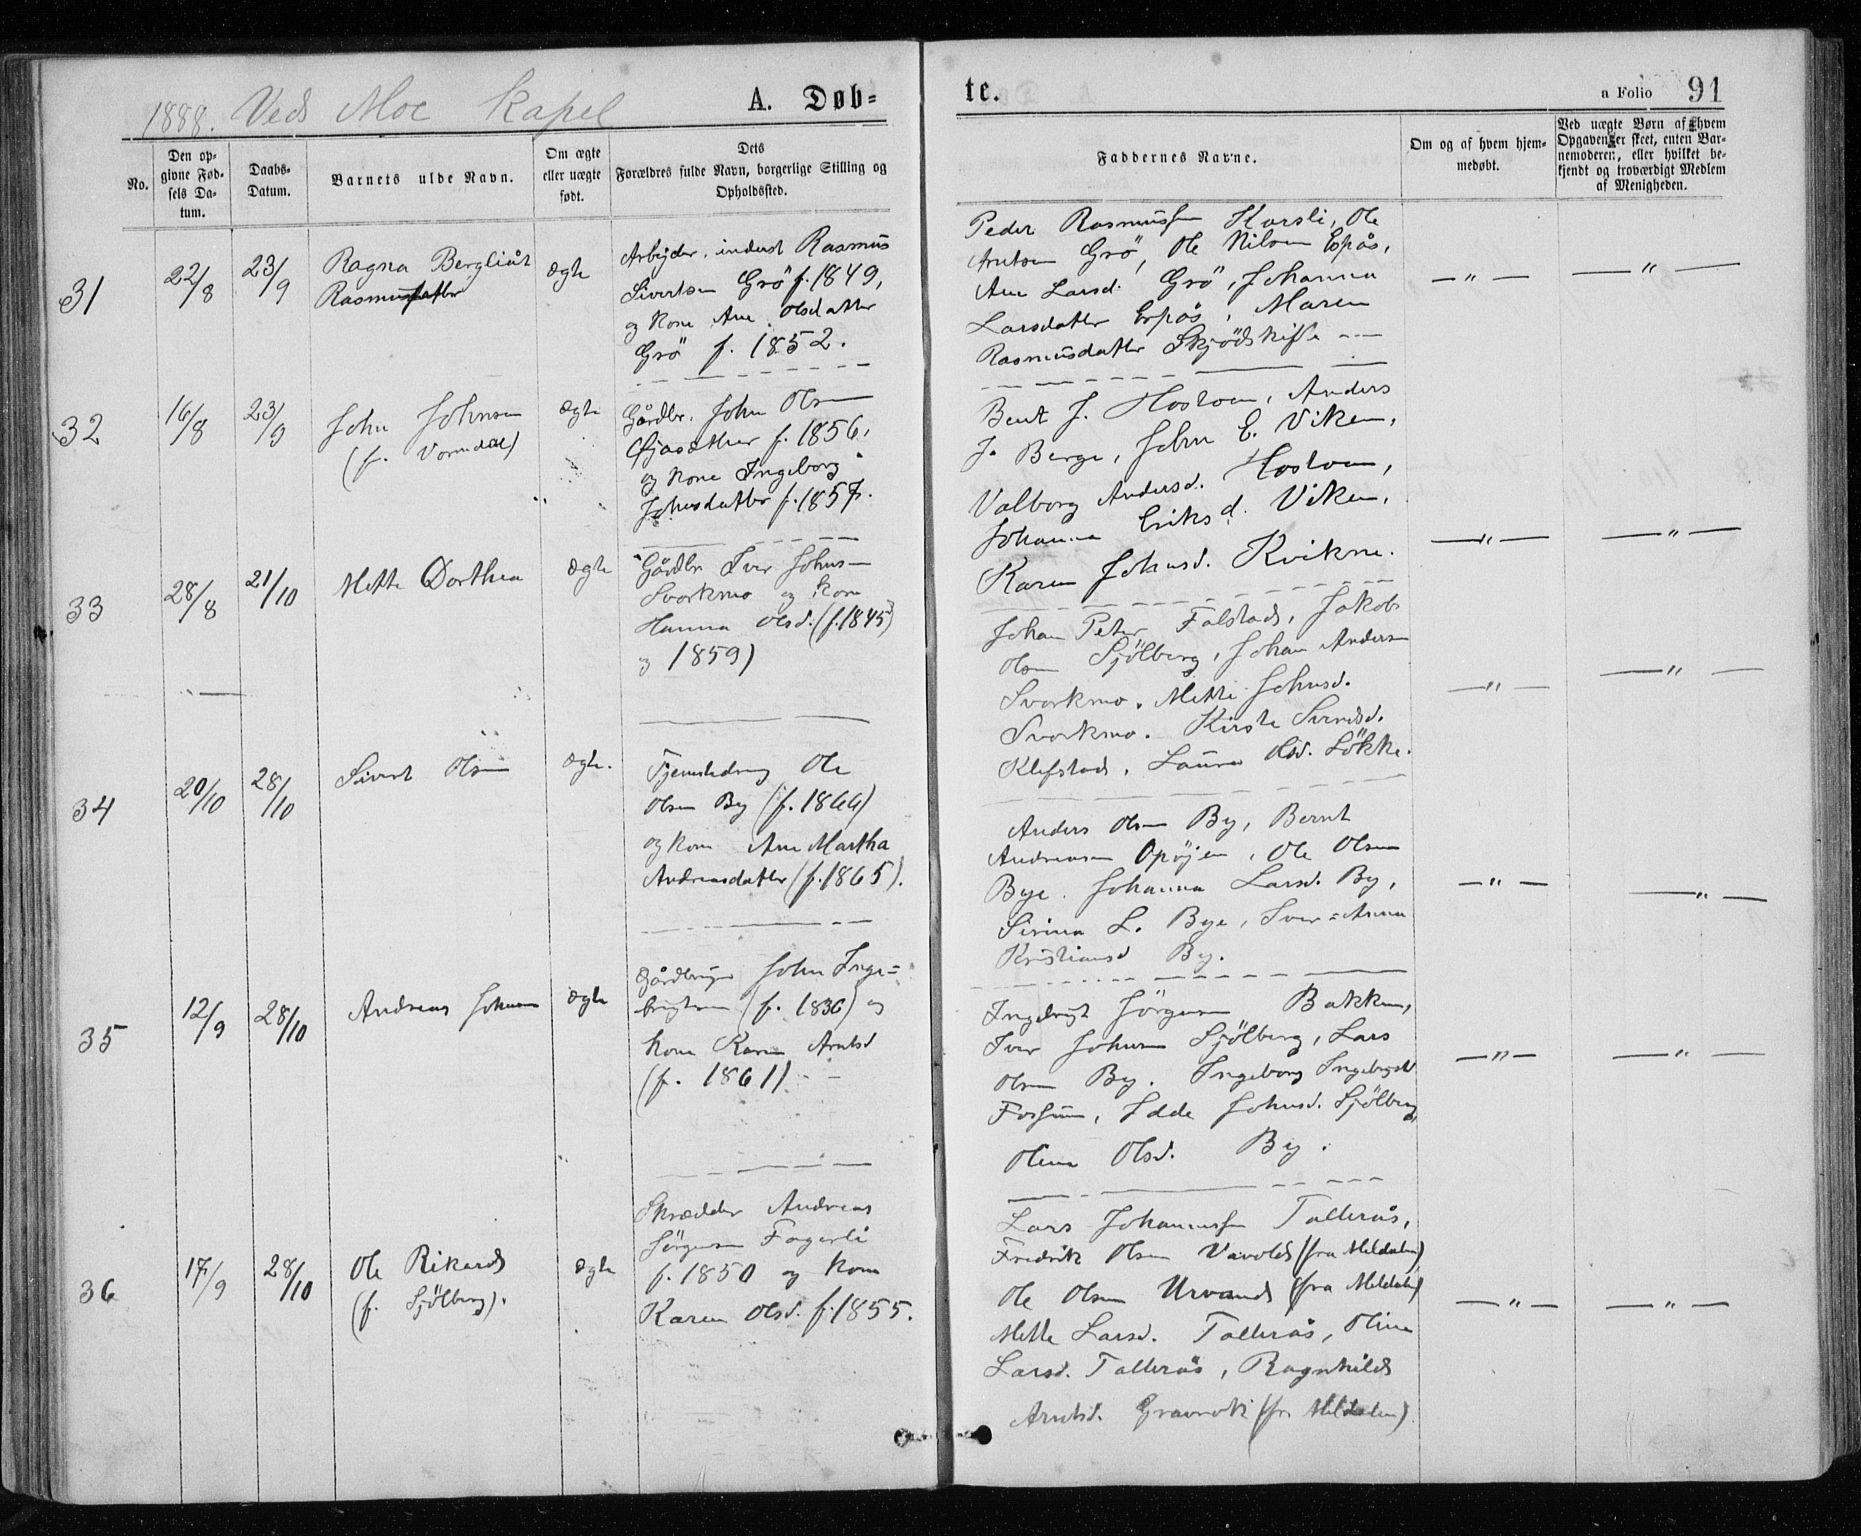 1888. Veds Moe Kapel
A. Døb=
te.
a Folio 91
No.
Den op-
givne Fød-
sels Da-
tum.
Daabs-
Datum.
Barnets ulde Navn.
Om ægte
eller uægte
født.
Dets
Forældres fulde Navn, borgerlige Stilling og
Opholdssted.
Faddernes Navne.
Om og af hvem hjem-
medøbt.
Ved uægte Børn af hvem
Opgaven er skeet, enten Bar-
nemoderen, eller hvilket be-
kjendt og troværdigt Medlem
af Menigheden.
31
22/8
23/9
Ragna Bergliåt
Rasmusdatter
ægte
Arbejder, inderst Rasmus
Sivertsen Grö f. 1849,
og Kone Ane Olsdatter
Grö f. 1852.
Peder Rasmussen Korsli, Ole
Arntsen Grö, Ole Nilsen Espås,
Ane Larsd. Grö, Johanna
Larsdatter Espås, Maren
Rasmusdatter Skjödskift
— " —
— " —
32
16/8
23/9
John Johnsen
(f. Vormdal)
ægte
Gårdbr. John Olsen
f. 1856,
og Kone Ingeborg
Johnsdatter f. 1857.
Bent J. Hostoen, Anders
J. Berge, John E. Viken,
Valborg Andersd. Hostoen,
Johanna Eriksd. Viken,
Karen Johnsd. Kvikne.
— " —
— " —
33
28/8
21/10
Mette Dorthea
ægte
Gårdbr Iver Johnsen
Svorkmo og Kone
Hanna Olsd. (f. 1845
og 1859)
Johan Peter Folstads, Jakob
Olsen Sjölberg, Johan Andersen
Svorkmo. Mette Johnsd.
Svorkmo. Kirste Svendsd.
Klefstads, Laura Olsd. Lökke.
— " —
— " —
34
20/10
28/10
Sivert Olsen
ægte.
Tjenestedreng Ole
Olsen By (f. 1866)
og Kone Ane Martha
Andreasdatter (f. 1865).
Anders Olsen By, Bernt
Andreasen Opöjen, Ole Olsen
Bye. Johanna Larsd. By,
Sirina L. Bye, Anna
Kristiansd By.
— " —
— " —
35
12/9
28/10
Andreas Johnsen
ægte
Gårdbruger John Inge=
brigtsen (f. 1836) og
Kone Karen Arntsd
(f. 1861)
Ingebrigt Jörgensen Bakken,
Iver Johnsen Sjölberg, Lars
Olsen By. Ingeborg Ingebrigtsd
Fossum, Idde Johnsd. Sjölberg,
Olina Olsd. By.
— " —
— " —
36
17/9
28/10
Ole Rikards
(f. Sjölberg).
ægte
Skrædder Andreas
Jörgensen Fagerli
f. 1850 og Kone
Karen Olsd. f. 1855.
Lars Johannessen Tallerås,
Fredrik Olsen Vavolds (fra Meldalen)
Ole Olsen Urvands (fra Meldalen)
Mette Larsd. Tallerås, Olina
Larsd. Tallerås, Ragnhilds
Arntsd. Gravrok (fra Meldalen)
— " —
— " —